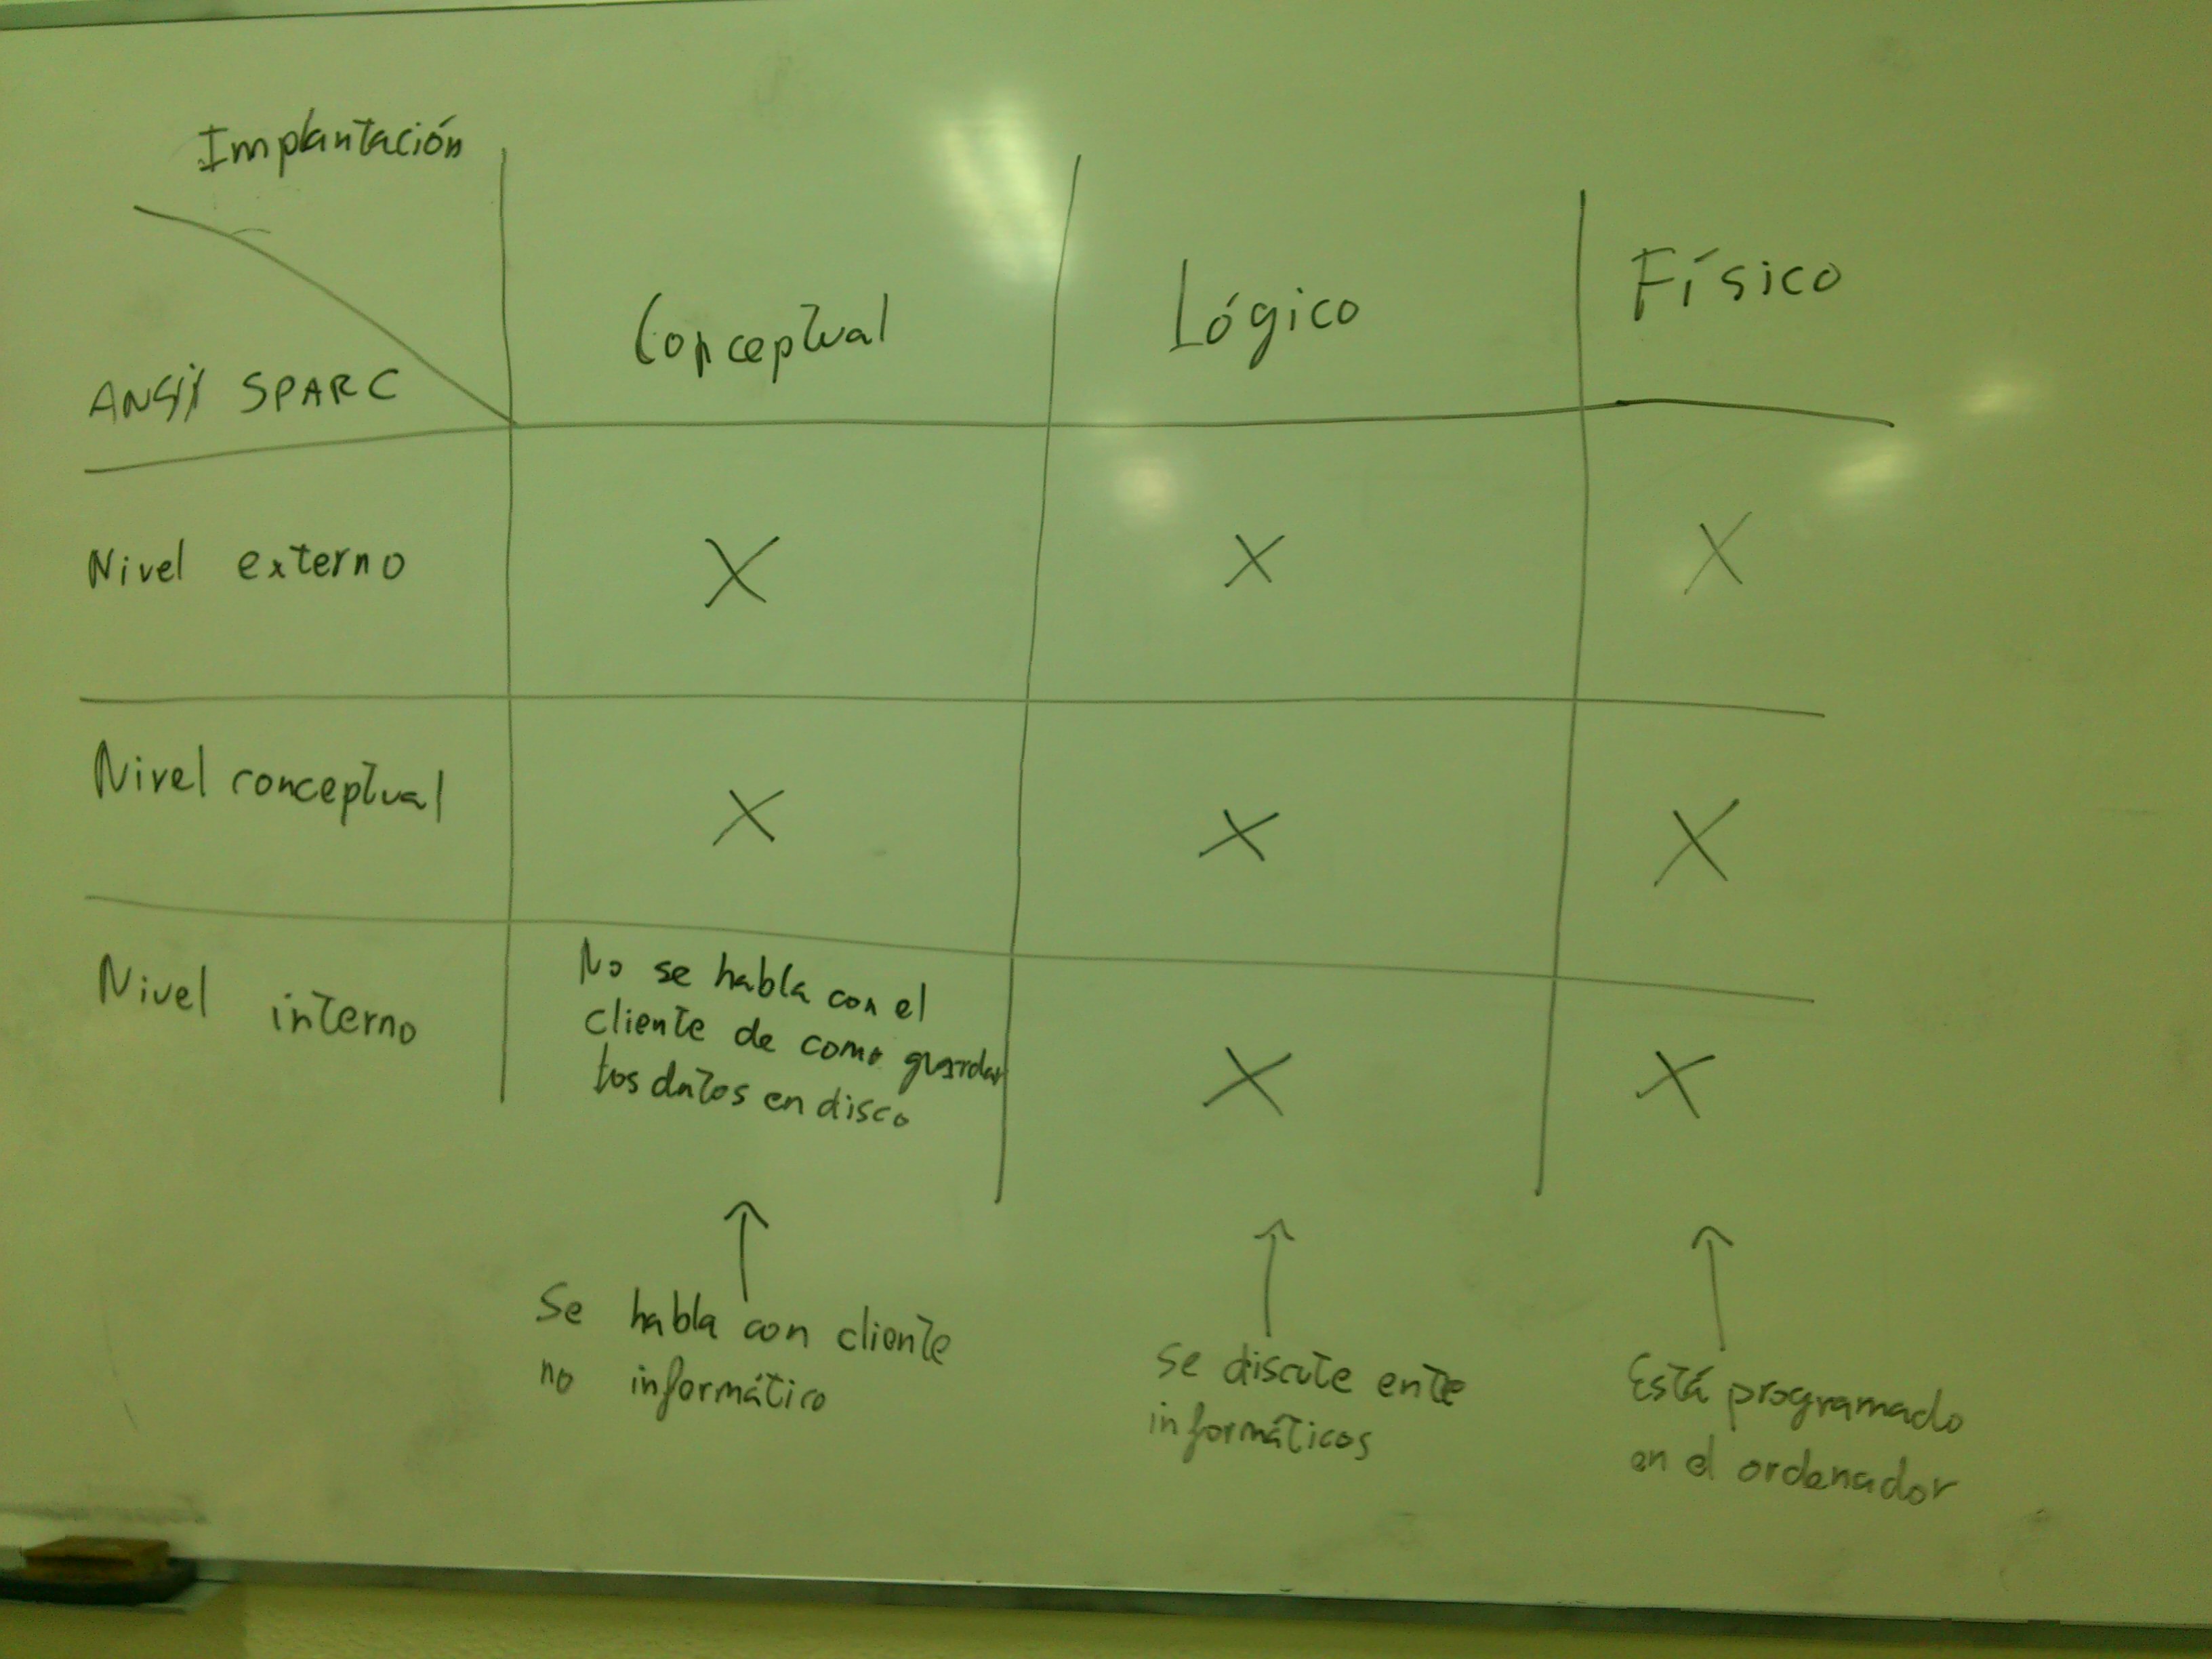 Implantación
Conceptual Lógico Físico
ANSI SPARC
Nivel externo X X X
Nivel conceptual X X X
Nivel interno
No se habla con el
cliente de como guardar
los datos en disco
X X
Se habla con cliente
no informático
Se discute ente
informáticos
Está programado
en el ordenador